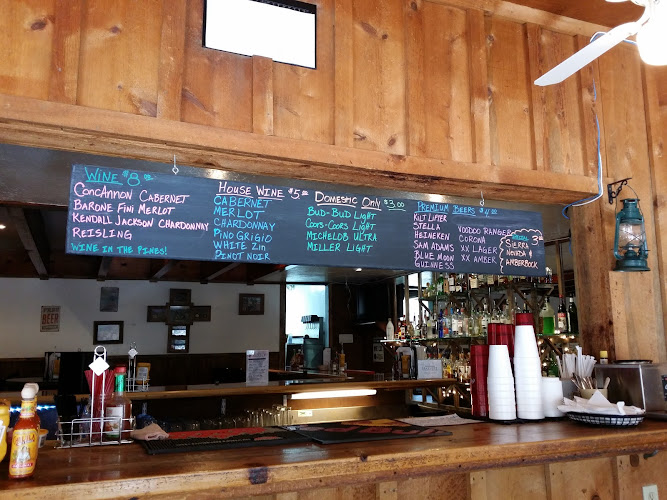 WINE $8.00
CONCANNON CABERNET
BARONE FINI MERLOT
KENDALL JACKSON CHARDONNAY
REISLING
WINE IN THE PINES!
HOUSE WINE $5.00
CABERNET
MERLOT
CHARDONNAY
PINO GRIGIO
WHITE Zin
PINOT NOIR
DOMESTIC ONLY $3.00
BUD-BUD LIGHT
COORS-COORS LIGHT
MICHELOB ULTRA
MILLER LIGHT
PREMIUM BEERS $4.00
KILT LIFTER
STELLA
HEINEKEN
SAM ADAMS
BLUE MOON
GUINNESS
VOODOO RANGER
CORONA
XX LAGER
XX AMBER
SIERRA
NEVADA
AMBERBOCK
BEER